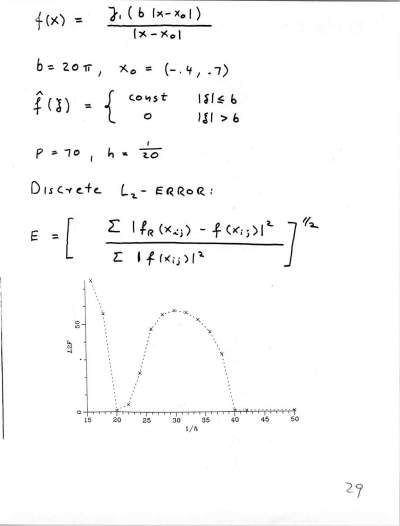 f(x) = J₁(b |x-x₀|) / |x-x₀|
b = 20π, x₀ = (-.4, .7)
f̂(ξ) = { const |ξ| ≤ b
0 |ξ| > b
P = 70, h = 1/20
Discrete L₂-ERROR:
E = [ Σ |f_R(x_ij) - f(x_ij)|² / Σ |f(x_ij)|² ]^1/2
50
0
15 20 25 30 35 40 45 50
1/Λ
29